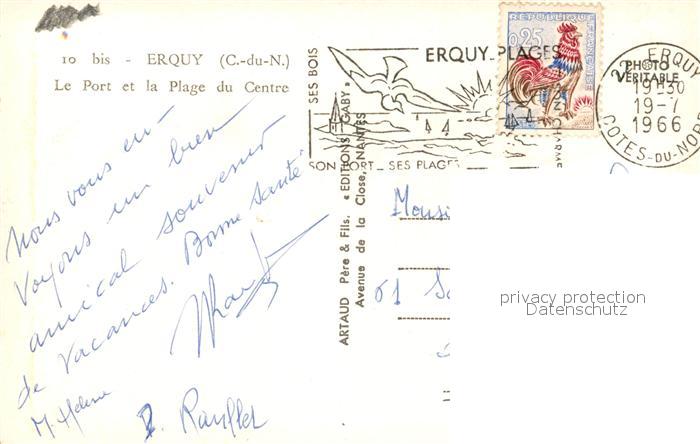 10 bis - ERQUY (C.-du-N.)
Le Port et la Plage du Centre
Nous vous en
voyons un bien
amical souvenir
de vacances. Bonne santé
M. Hélène
SES BOIS
ERQUY-PLAGES
SON PORT _ SES PLAGES
SON CHARME
REPUBLIQUE FRANÇAISE
0,25
ERQUY
PHOTO
VERITABLE
19H30
19-7
1966
COTES-DU-NORD
ARTAUD Père & Fils. « EDITIONS GABY »
Avenue de la Close, NANTES
Monsi
61
privacy protection
Datenschutz